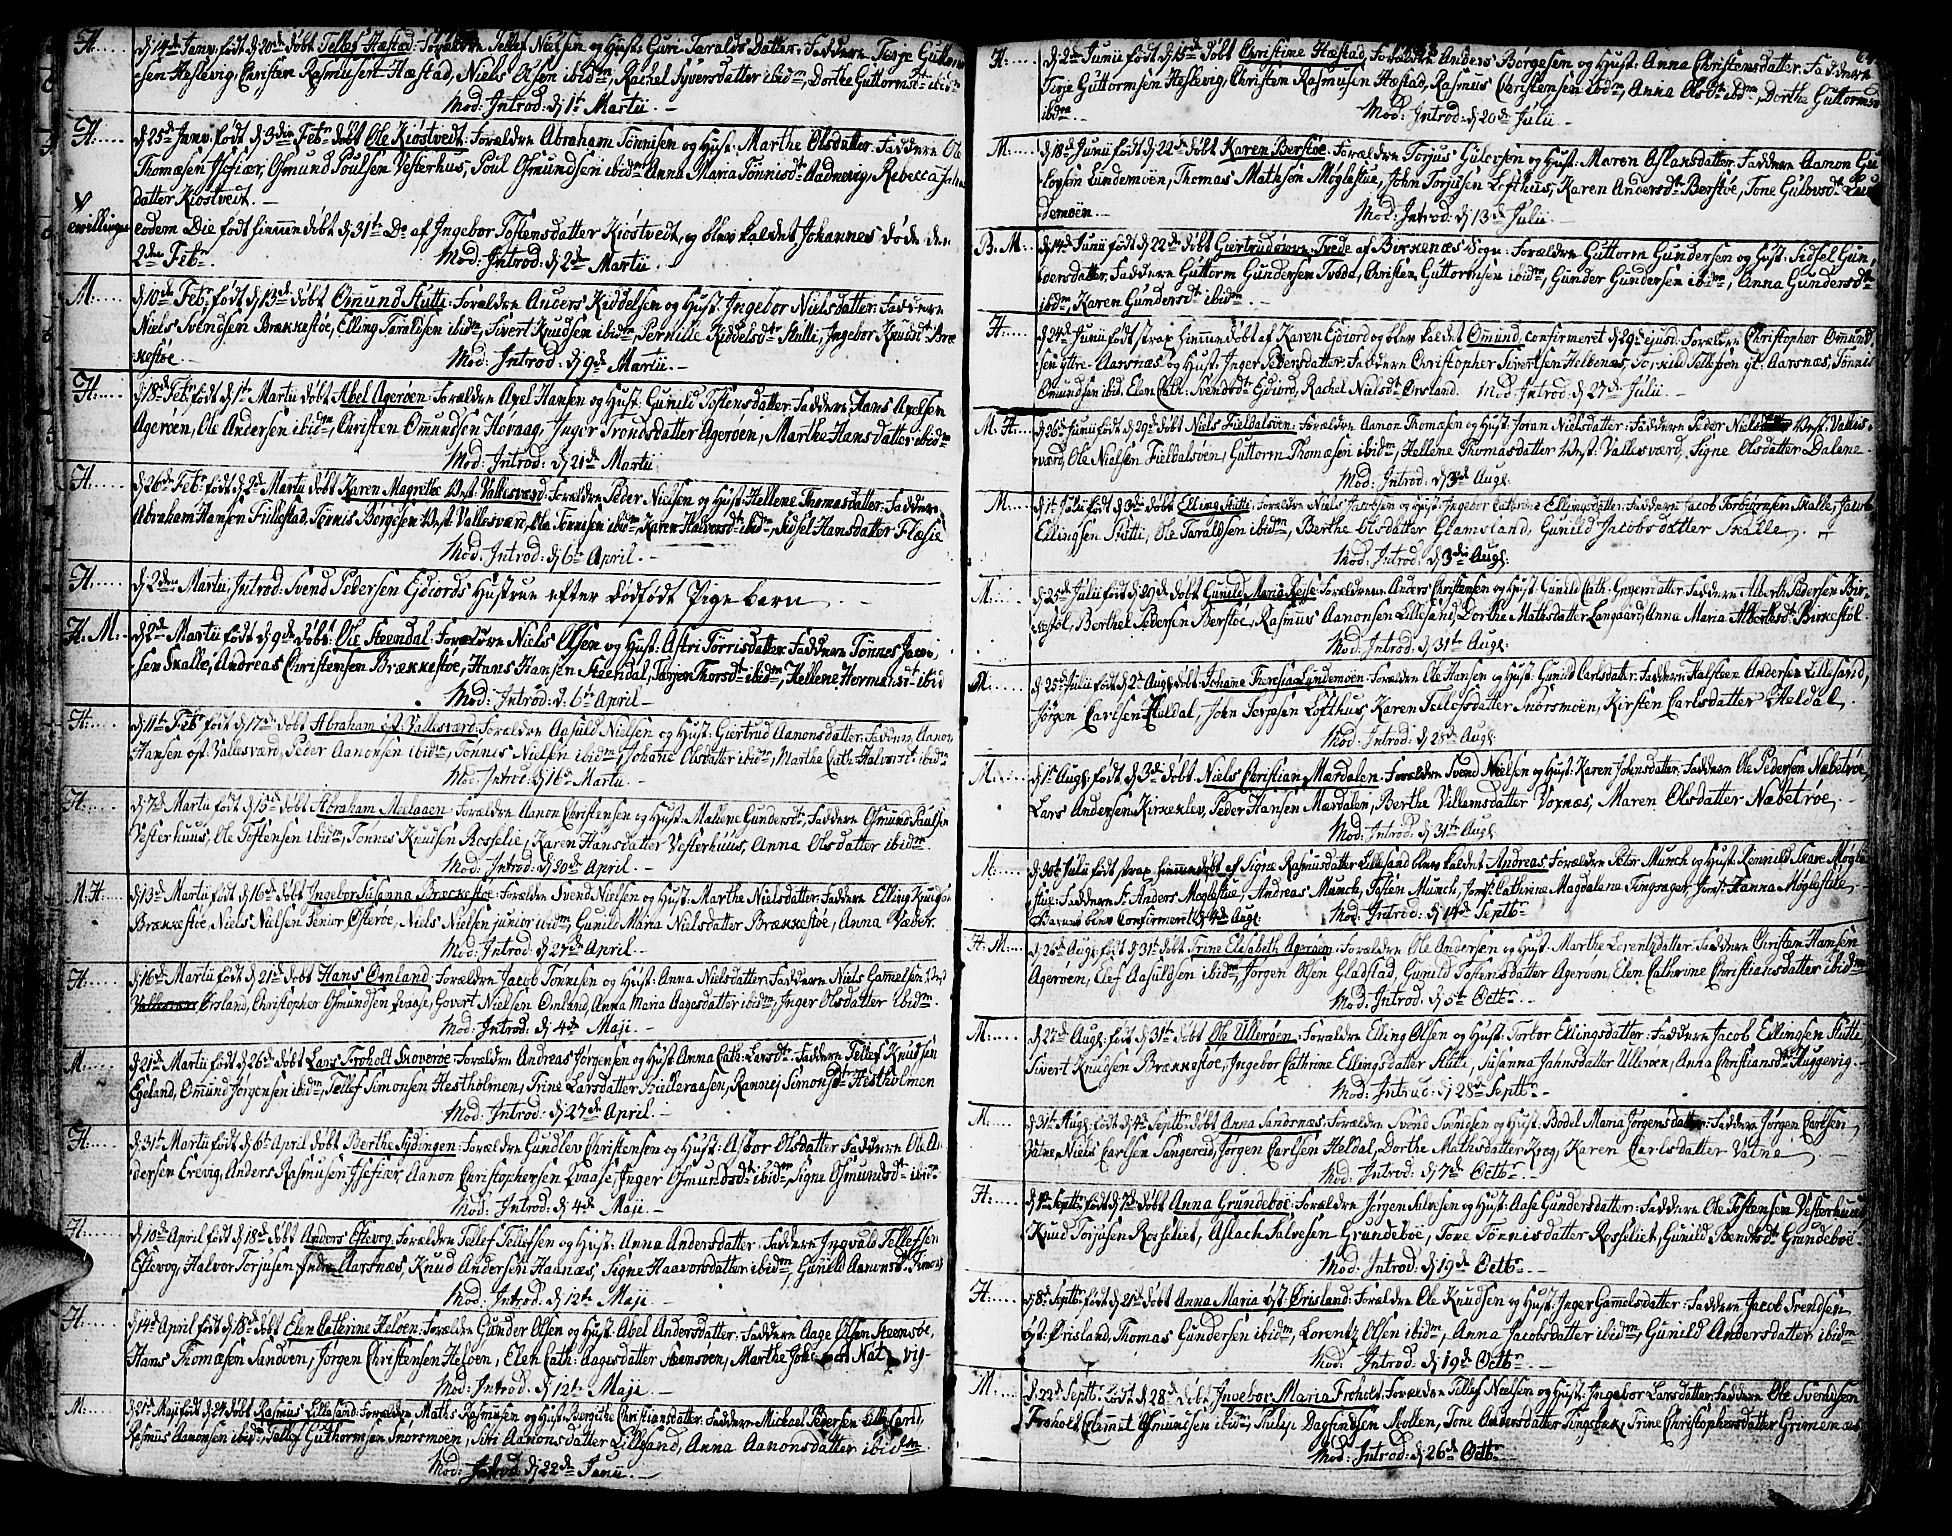 H. d 14de Janv. født d 20de døbt Tellef Hæstad: Forældre Tellef Nielsen og Hust: Guri Taralds Datter: Faddere Terje Guttorm
sen Heslevig, Christen Rasmusen Hæstad, Niels Olsen ibidm, Rachel Syversdatter ibidm, Dorthe Guttormsdt ibidm
Mod: Introd: d 1te Martii
H. d 25de Janv. født d 3die Febr døbt Ole Kiøstvedt: Forældre Abraham Tønnisen og Hust: Marthe Olsdatter: Faddere Ole
Thomæsen Isefiær, Osmund Poulsen Vesterhus, Poul Osmundsen ibidm Anna Maria Tønnisdt Aadnevig, Rebecca
datter Kiøstvedt.
eodem Die født hiemmedøbt d 31te Do af Ingebor Tostensdatter Kiøstvedt, og blev kaldet Johannes døde den
2den Febr. Mod: Introd: d 2den Martii
M. d 10de Febr. født d 13de døbt Omund Stutti: Forældre Anders Kiddelsen og Hust: Ingebor Nielsdatter: Faddere
Niels Svendsen Brækkestøe, Elling Taraldsen ibidm, Sivert Knudsen ibidm, Pernille Kiddelsdtr Stutti, Ingebor Knudsdt Bræ
kestøe. Mod: Introd: d 9de Martii.
H. d 18de Febr født d 1te Martii døbt Abel Agerøen: Forældre Axel Hansen og Hust: Gunild Tostensdatter: Faddere Hans Axelsen
Agerøen, Ole Andersen ibidm, Christen Omundsen Høvaag, Inger Trondsdatter Agerøen, Marthe Hansdatter ibidm
Mod: Introd: d 21de Martii
H. d 26de Febr født d 2den Martii døbt Karen Magrethe Vest: Vallesværd: Forældre Peder Nielsen og Hust: Hellene Thomasdatter: Faddere
Abraham Hansen Fiillestad, Tønnis Børgesen Vest: Vallesværd, Ole Tønnisen ibidm, Karen Halversdt ibidm, Sidsel Hansdatter Flæsie
Mod: Introd: d 6te April.
H. d 2den Martii, Introd: Svend Pedersen Eidiords Hustrue efter dødfødt Pigebarn
H. M. d 2den Martii født d 9de døbt Ole Steendal: Forældre Niels Olsen og Hust: Astri Tørrisdatter Faddere Tønnes Jacob,
sen Skalle, Andreas Christensen Brækkestøe, Hans Hansen Steendal, Torjer Thorsdt ibidm, Hellene Hermansdt ibid
Mod: Introd: d. 6te April
H. d 11te Febr født d 17de døbt Abraham øst Vallesværd: Forældre Aasuld Nielsen og Hust: Giertrud Aanonsdatter: Faddere Aanon
Hansen øst: Vallesværd, Peder Aanonsen ibidm, Tønnis Nielsen ibidm, Johane Olsdatter ibidm, Marthe Cath: Halversdt ibidm
Mod: Introd: d 16de Martii.
H. d 7de Martii født d 15de døbt Abraham: Forældre Aanon Christensen og Hust: Mallene Gundersdt, Faddere Osmund Paulsen
Vesterhuus, Ole Tostensen ibidm, Tønnes Knudsen Rosselie, Karen Hansdatter Vesterhuus, Anna Olsdatter ibidm.
Mod: Introd: d 30te April.
M. H. d 13de Martii født d 16de døbt Ingebor Susanna Brækkestøe: Forældre Svend Nielsen og Hust: Marthe Nielsdatter: Faddere Elling Knudsen
Brækkestøe, Niels Nielsen Senior Osterøe, Niels Nielsen junior ibidm, Gunild Maria Nielsdatter Brækkestøe, Anna Væber.
Mod: Introd: d 27de April
H. d 16de Martii født d 21de døbt Hans Omland: Forældre Jacob Tønnesen og Hust: Anna Nielsdatter: Faddere Niels Gamelsen Vest
Ørsland, Christopher Osmundsen Qvaase, Govert Nielsen Omland, Anna Maria Aagesdatter ibidm, Inger Olsdatter ibidm.
Mod: Introd: d 4de Maji.
M. d 21de Martii født d 26de døbt Lars Froholt Skoverøe: Forældre Andreas Jørgensen og Hust: Anna Cath: Larsdt: Faddere Tellef Knudsen
Egeland, Ommund Jørgensen ibidm, Tellef Simonsen Hestholmen, Trine Larsdatter Hulleraasen, Rannej Simonsdt Hestholmen
Mod: Introd: d 27de April.
H. d 31te Martii født d 6te April døbt Berthe Isdingen: Forældre Gundlev Christensen og Hust: Asbor Olsdatter Faddere Ole An
dersen Erevig, Anders Rasmusen Isefiær, Aanon Christophersen Qvaase, Inger Osmundsdt ibidm, Signe Osmundsdt ibidm
Mod: Introd: d 4de Maji.
H. d 10de April født d 18de døbt Anders Eftevog: Forældre Tellef Tellefsen og Hust: Anna Andersdatter: Faddere Ingvald Tellefsen
Eftevog, Halvor Torjusen Indre Aarsnæs, Knud Andersen Haanæs, Signe Haavorsdatter ibidm, Gunild Aanonsdt
Mod: Introd: d 12te Maji
H. d 14de April født d 18de døbt Elen Catherine Heløen: Forældre Gunder Olsen og Hust: Abel Andersdatter: Faddere Aage Olsen Steensøe,
Hans Thomæsen Sandven, Jørgen Christensen Heløen, Elen Cath: Aagesdatter Steensøen, Marthe
Mod: Introd: d 12te Maji.
M. d 21de Maji født d 24de døbt Rasmus Lillesand: Forældre Maths Rasmusen og Hust: Bergithe Christiansdatter: Faddere Mickael Pedersen Lillesand,
Rasmus Aanonsen ibidm, Tellef Guthormsen Snorsmoen, Siri Aanonsdatter Lillesand, Anna Aanonsdatter ibidm.
Mod: Introd: d 22de Junii.
H. d 2den Junii født d 15de døbt Christine Hæstad: Forældre Anders Børgesen og Hust: Anna Christensdatter: Faddere
Terje Guttormsen Heslevig, Christen Rasmusen Hæstad, Rasmus Christensen ibidm, Anna Olsdt ibidm, Dorthe Guttormsdt
ibidm. Mod: Introd: d 20de Julii
M. d 18de Junii født d 22de døbt Karen Berstøe: Forældre Torjus Gulovsen og Hust: Maren Aslaksdatter: Faddere Aamon Gu
lovsen Lundemoën, Thomas Mathson Møglestue, John Torjusen Lofthus, Karen Andersdt Berstøe, Tone Gulovsdt Lun
demoën. Mod: Introd: d 13de Julii
B: M. d 14de Junii født d 22de døbt Giertrud Tvede af Birkenæs Sogn: Forældre Guttorm Gundersen og Hust: Sidsel Gun,
versdatter, Faddere Guttorm Gundersen Tvede, Christen Guttormsen ibidm, Gunder Gundersen ibidm, Anna Gundersdt
ibidm, Karen Gundersdt ibidm.
H. d 24de Junii født strax hiemmedøbt af Karen Eidiord og blev kaldet Omund, confirmeret d 29de ejusd: Forældre Christopher Omund,
sen ytre Aarsnæs og Hust: Inger Pedersdatter: Faddere Christopher Sivertsen Heldenæs, Torkild Tellefsen yt: Aarsnæs, Tønnis
Omundsen ibid: Elen Cath: Svendsdt Eidiord, Rachel Nielsdt Ørsland. Mod: Introd: d 27de Julii.
M. H. d 26de Junii født d 29de døbt Niels Fieldalsøen: Forældre Aanon Thomæsen og Hust: Joran Nielsdatter: Faddere Peder Nielsen Vest: Valles
værd, Ole Nielsen Fieldalsøen, Guttorm Thomæsen ibidm, Hellene Thomasdatter Vest: Vallesværd, Signe Olsdatter Dalene.
Mod: Introd: d 3de Augl:
M. d 1te Julii født d 3die døbt Elling Stutti: Forældre Niels Jacobsen og Hust: Ingebor Cathrine Ellingsdatter: Faddere Jacob Torbiørnsen Skalle, Jacob
Ellingsen Stutti, Ole Taraldsen ibidm, Berthe Olsdatter Glamsland, Gunild Jacobsdatter Skalle,
Mod: Introd: d 3die Augl:
M. d 25de Julii født d 29de døbt Gunild Maria Reise: Forældre Anders Christensen og Hust: Gunild Cath: Faddere Alberth Pedersen Bir
kestøl, Berthel Pedersen Berstøe, Rasmus Aanonsen Lillesand, Dorthe Mathsdatter Langaard, Anna Maria Alberthsdt: Birkestøl
Mod: Introd: d 31te Augl:
M. d 25de Julii født d 2de Augl: døbt Johane Theresia Lundemoen: Forældre Ole Hansen og Hust: Gunild Carlsdatter: Faddere Halsteen Andersen Lillesand,
Jørgen Carlsen Heldal, John Terjesen Lofthus, Karen Tellefsdatter Snorsmoën, Kirsten Carlsdatter Heldal.
Mod: Introd: d 28de Augl:
M. d 1te Augl: født d 3de døbt Niels Christian Mærdalen: Forældre Svend Nielsen og Hust: Karen Johnsdatter: Faddere Ole Pedersen Næbetrøe,
Lars Andersen Kirkeklev, Peder Hansen Mærdalen, Berthe Villumsdatter Vornæs, Maren Olsdatter Næbetrøe,
Mod: Introd: d 31te Augl:
M. d 30te Julii født strax hiemmedøbt af Signe Rasmusdatter Lillesand blev kaldet Andreas Forældre Peter Munch og Hust: Møgle
stue: Faddere Sr Anders Møglestue, Andreas Munch, Tosten Munch, Jomfr Cathrine Magdalena Tingsager, Jomfr: Hanna Møglestue
Barnet blev Confirmeret d 4de Augl: Mod: Introd: d 14de Septbr
H. M. d 26de Augl født d 31te døbt Trine Elisabeth Agerøen: Forældre Ole Andersen og Hust: Marthe Lorentzdatter: Faddere Christen Hansen
Agerøen, Elef Aasuldsen ibidm, Jørgen Olsen Gladstad, Gunild Tostensdatter Agerøn, Elen Catherine Christiansdatter ibidm
Mod: Introd: d 5te Octbr.
M. d 27de Augl: født d 31te døbt Ole Ullerøen: Forældre Elling Olsen og Hust: Torbor Ellingsdatter: Faddere Jacob Ellingsen Stutti
Sivert Knudsen Brækkestøe, Ingebor Cathrine Ellingsdatter Stutti, Susanna Jahnsdatter Ullerøen, Anna Christiansdt Huggevig.
Mod: Introd: d 28de Septbr
M. d 31te Augl: født d 4de Septbr: døbt Anna Sandrnæs: Forældre Svend Svendsen og Hust: Bodel Maria Jørgensdatter: Faddere Jørgen Carlsen
Vatne, Niels Carlsen Tangereid, Jørgen Carlsen Heldal, Dorthe Mathsdatter Krog, Karen Carlsdatter Vatne
Mod: Introd: d 7de Octbr
H. d 1te Septbr: født d 7de døbt Anna Grundebøe: Forældre Jørgen Salvesen og Hust: Aase Gundersdatter: Faddere Ole Tostensen Vesterhuus,
Knud Torjusen Rosseliet, Aslach Salvesen Grundebøe, Tone Tønnisdatter Rosseliet, Gunild Bendtsdt: Grundebøe.
Mod: Introd: d 19de Octbr
H. d 8de Septbr: født d 21de døbt Anna Maria Øst: Ørisland: Forældre Ole Knudsen og Hust: Inger Gammelsdatter: Faddere Jacob Svendsen,
øst: Ørisland, Thomas Gundersen ibidm, Lorentz Olsen ibidm, Anna Jacobsdatter ibidm, Gunild Andersdatter ibidm
Mod: Introd: d 19de Octbr
M. d 22de Septbr: født d 28de døbt Ingebor Maria Froholt: Forældre Tellef Nielsen og Hust: Ingebor Larsdatter: Faddere Ole Svendsen
Froholt, Clemmet Osmundsen ibidm, Tulef Dagfindsen Molten, Tone Andersdatter Tingstvæt, Trine Christophersdatter Grimenæs
Mod: Introd: d 26de Octbr